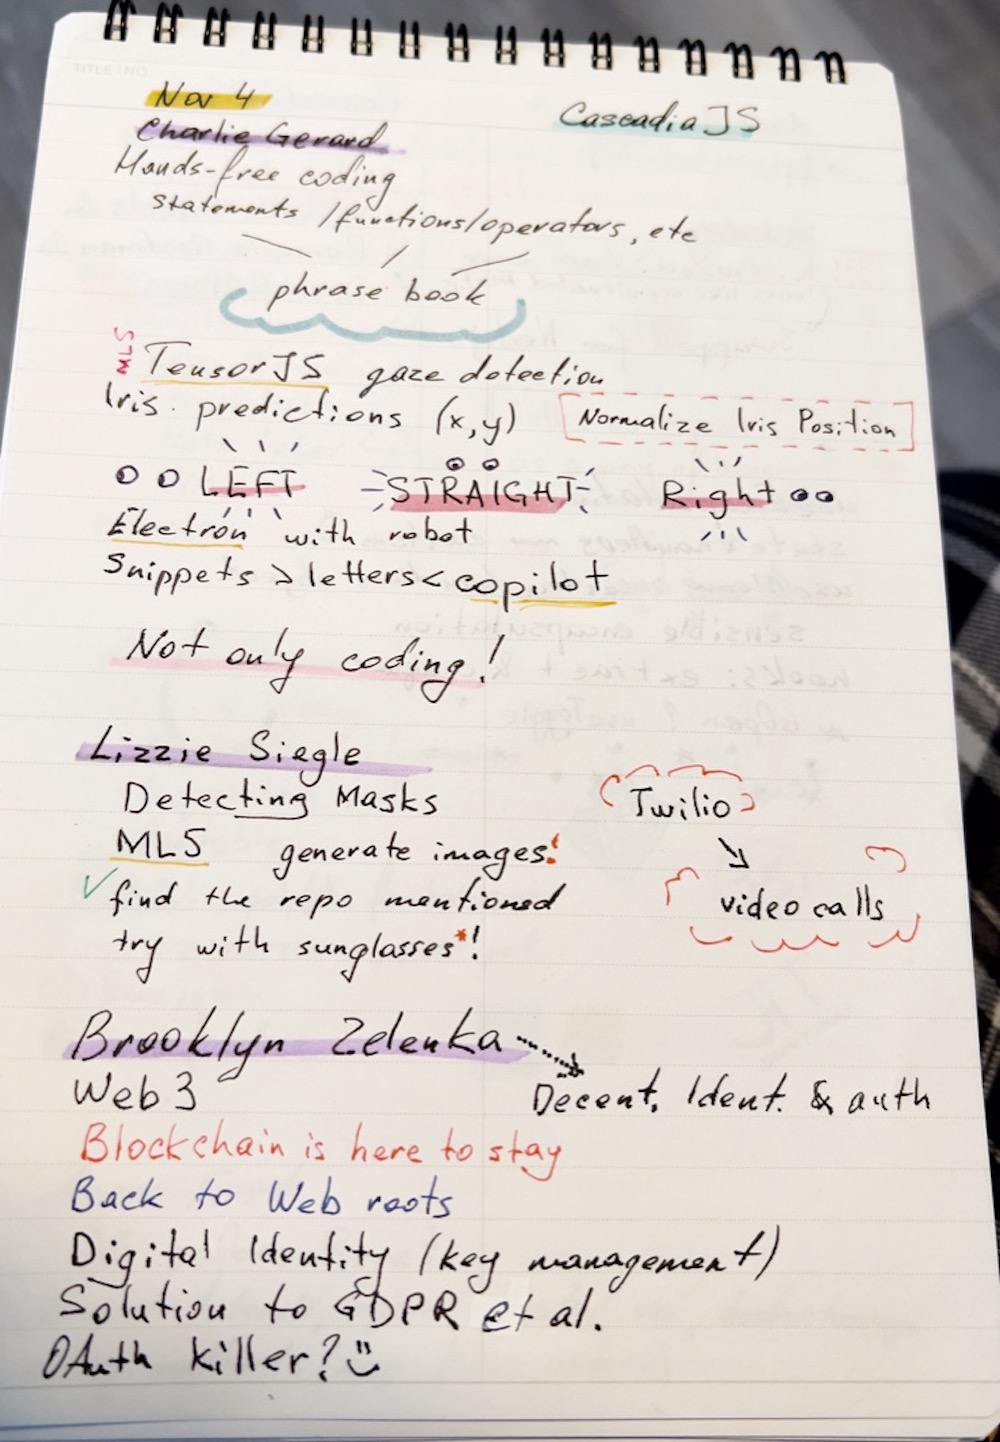 TITLE / NO
Nov 4
CascadiaJS
Charlie Gerard
Hands-free coding
statements /functions/operators, etc
phrase book
ML5
TensorJS gaze detection
Iris predictions (x,y)
Normalize Iris Position
LEFT STRAIGHT Right
Electron with robot
Snippets > letters < copilot
Not only coding!
Lizzie Siegle
Detecting Masks
Twilio
ML5 generate images!
find the repo mentioned
video calls
try with sunglasses*!
Brooklyn Zelenka
Web 3
Decent. Ident. & auth
Blockchain is here to stay
Back to Web roots
Digital Identity (key management)
Solution to GDPR et al.
OAuth killer?